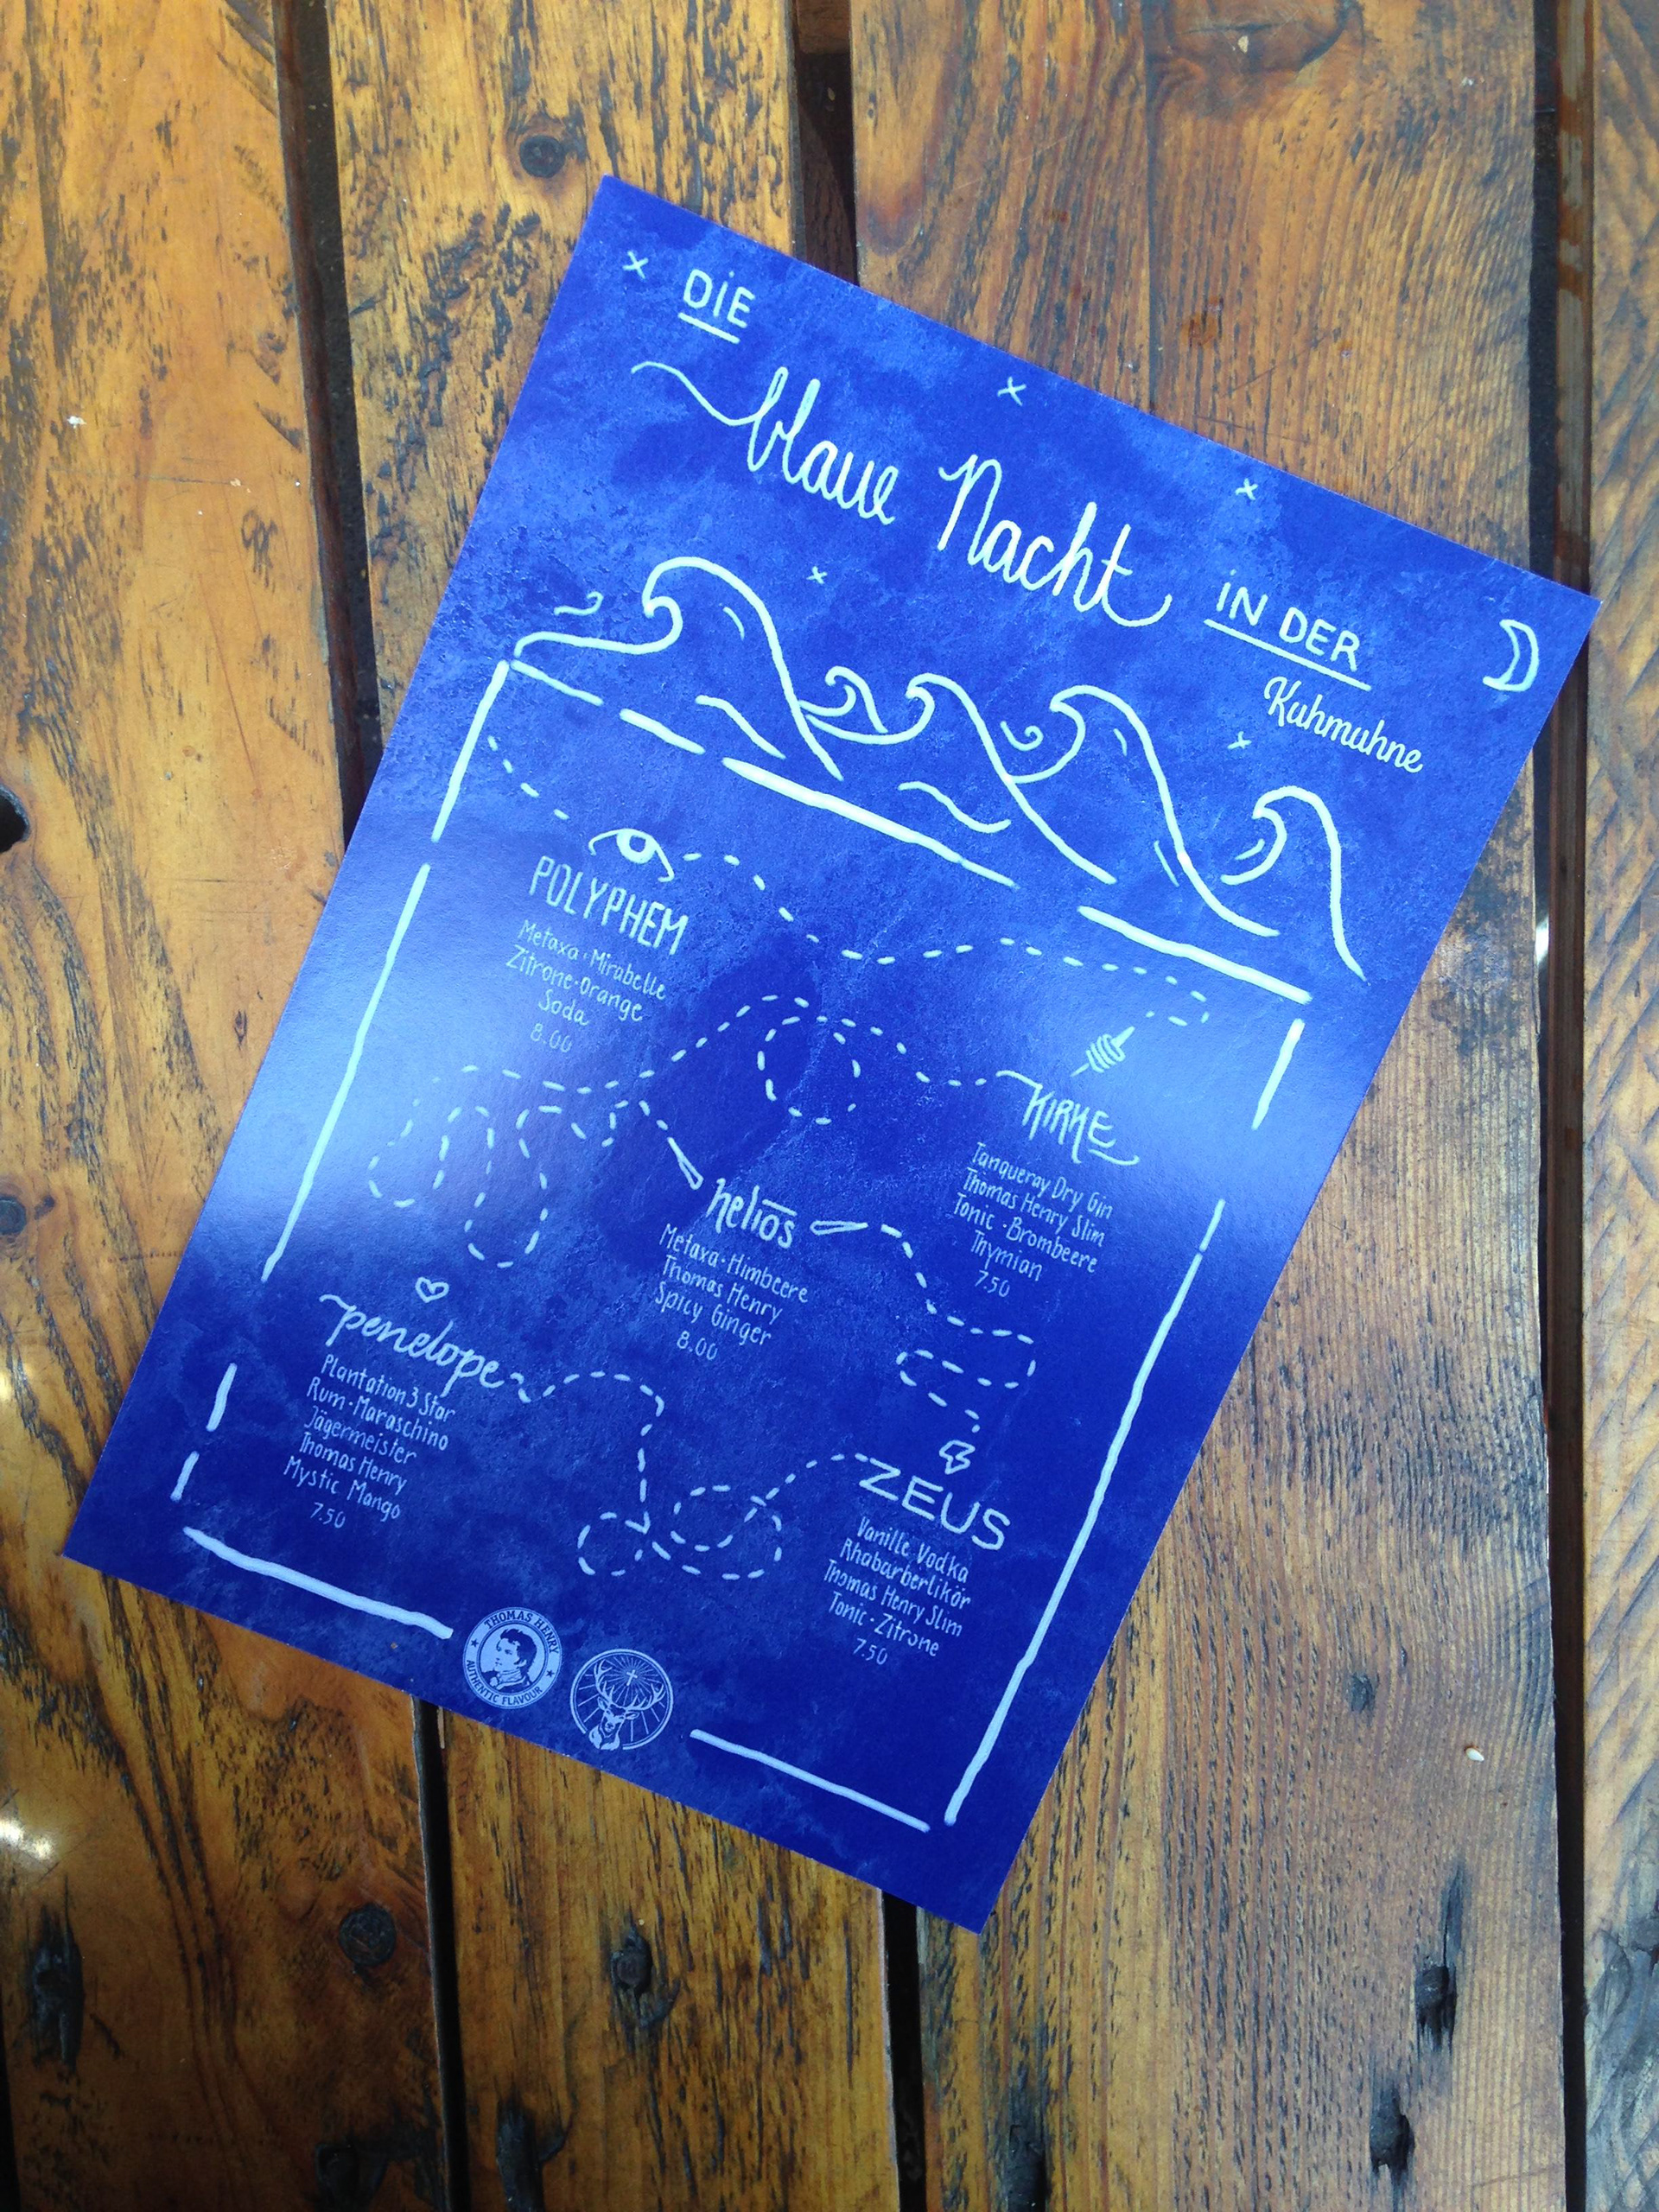 DiE
blaue Nacht
iN DER
Kuhmuhne
POLYPHEM
Metaxa · Mirabelle
Zitrone · Orange
Soda
8.00
KIRKE
Tanqueray Dry Gin
Thomas Henry Slim
Tonic · Brombeere
Thymian
7.50
helios
Metaxa · Himbeere
Thomas Henry
Spicy Ginger
8.00
penelope
Plantation 3 Star
Rum · Maraschino
Jägermeister
Thomas Henry
Mystic Mango
7.50
ZEUS
Vanille Vodka
Rhabarberlikör
Thomas Henry Slim
Tonic · Zitrone
7.50
THOMAS HENRY
AUTHENTIC FLAVOUR